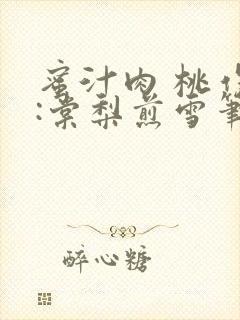 蜜汁肉桃作
:棠梨煎雪笔
醉心糖